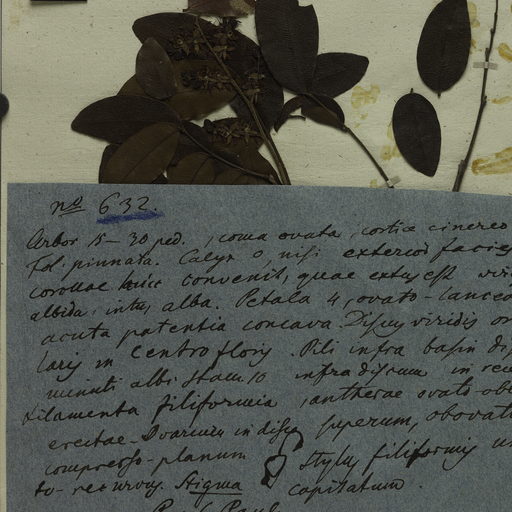 no 632.
Arbor 15-30 ped., coma ovata, cortice cinereo
Fol. pinnata. Calyx 0, nisi exterior facies
corollae huic convenit, quae extus est
albida, intus alba. Petala 4, ovato-lanceo
acuta patentia concava. Discus viridis
laris in centro floris. Pili infra basin
minuti albi. Stam 10 infra discum in
Filamenta filiformia, antherae ovato
erectae. Ovarium in disco superum, obovat
compresso-planum Stylus filiformis
to-recurvus. Stigma capitatum.